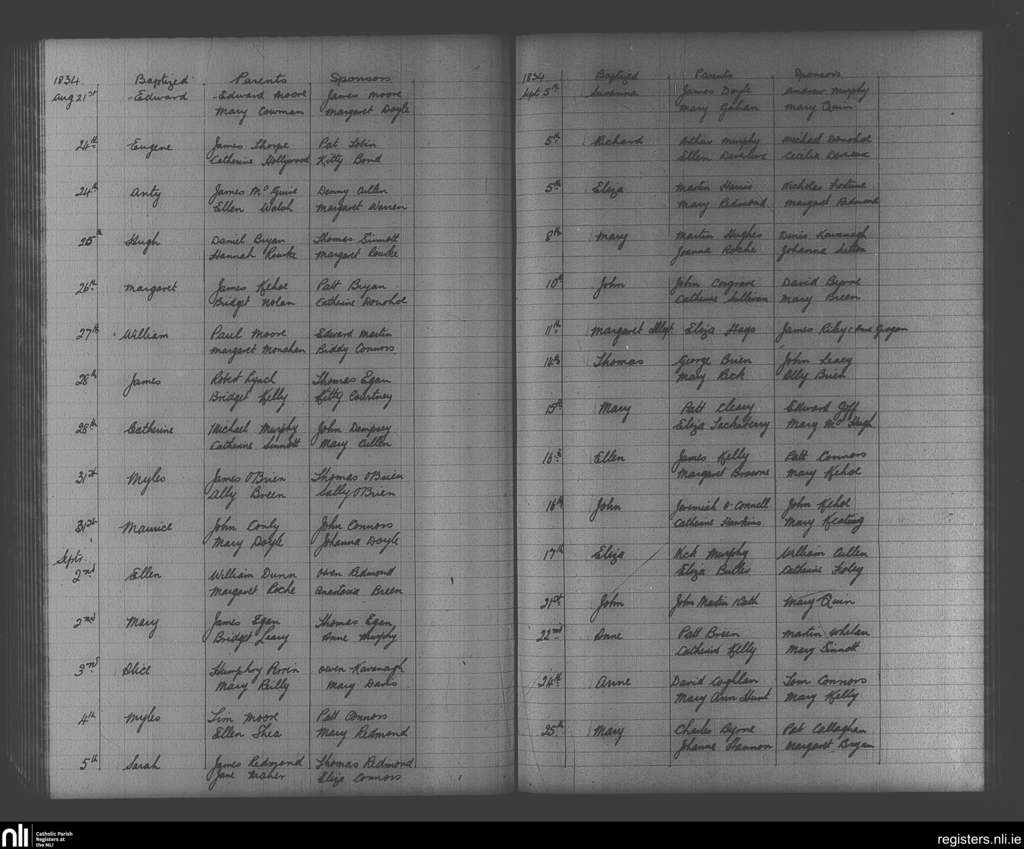 1834. Baptized Parents Sponsors
Aug 21st Edward Edward Moore James Moore
Mary Cowman Margaret Doyle
24th Eugene James Thorpe Pat Tobin
Catherine Hollywood Kitty Bond
24th Anty James McGuire Denny Cullen
Ellen Walsh Margaret Warren
25th Hugh Daniel Bryan Thomas Sinnott
Hannah Rourke Margaret Rourke
26th Margaret James Kehoe Patt Bryan
Bridget Nolan Catherine Donohoe
27th William Paul Moore Edward Martin
Margaret Monahan Biddy Connors
28th James Robert Lynch Thomas Egan
Bridget Kelly Kitty Courtney
28th Catherine Michael Murphy John Dempsey
Catherine Sinnott Mary Cullen
31st Myles James O'Brien Thomas O'Brien
Ally Breen Sally O'Brien
31st Maurice John Conly John Connors
Mary Doyle Johanna Doyle
Septr.
2nd Ellen William Dunn Owen Redmond
Margaret Roche Anastasia Breen
2nd Mary James Egan Thomas Egan
Bridget Leary Anne Murphy
3rd Alice Humphry Owen Kavanagh
Mary Reilly Mary Davis
4th Myles Tim Moore Patt Connors
Ellen Shea Mary Redmond
5th Sarah James Redmond Thomas Redmond
Jane Maher Eliza Connors
1834 Baptized Parents Sponsors
Sept 5th Susanna James Doyle Andrew Murphy
Mary Gahan Mary Quin
5th Richard Arthur Murphy Michael Donohoe
Ellen Cecelia
5th Eliza Martin Harris Nicholas Fortune
Mary Redmond Margaret Redmond
8th Mary Martin Hughes Denis Kavanagh
Joanna Roche Johanna Sutton
10th John John Cosgrave David Byrne
Catherine Sullivan Mary Breen
11th Margaret Illegt Eliza Hays James Riley & Ann Grogan
14th Thomas George Brien John Leacy
Mary Rick Ally Brien
15th Mary Patt Cleary Edward Goff
Eliza Tackaberry Mary McHugh
16th Ellen James Kelly Patt Connors
Margaret Browne Mary Kehoe
16th John Jeremiah O'Connell John Kehoe
Catherine Hawkins Mary Keating
17th Eliza Nick Murphy William Cullen
Eliza Butler Catherine Foley
21st John John Martin Rath Mary Quin
22nd Anne Patt Breen Martin Whelan
Catherine Kelly Mary Sinnott
24th Anne David Coghlan Tom Connors
Mary Ann Hunt Mary Kelly
25th Mary Charles Byrne Pat Callaghan
Johanna Shannon Margaret Bryan
nli Catholic Parish
Registers at
the NLI
registers.nli.ie